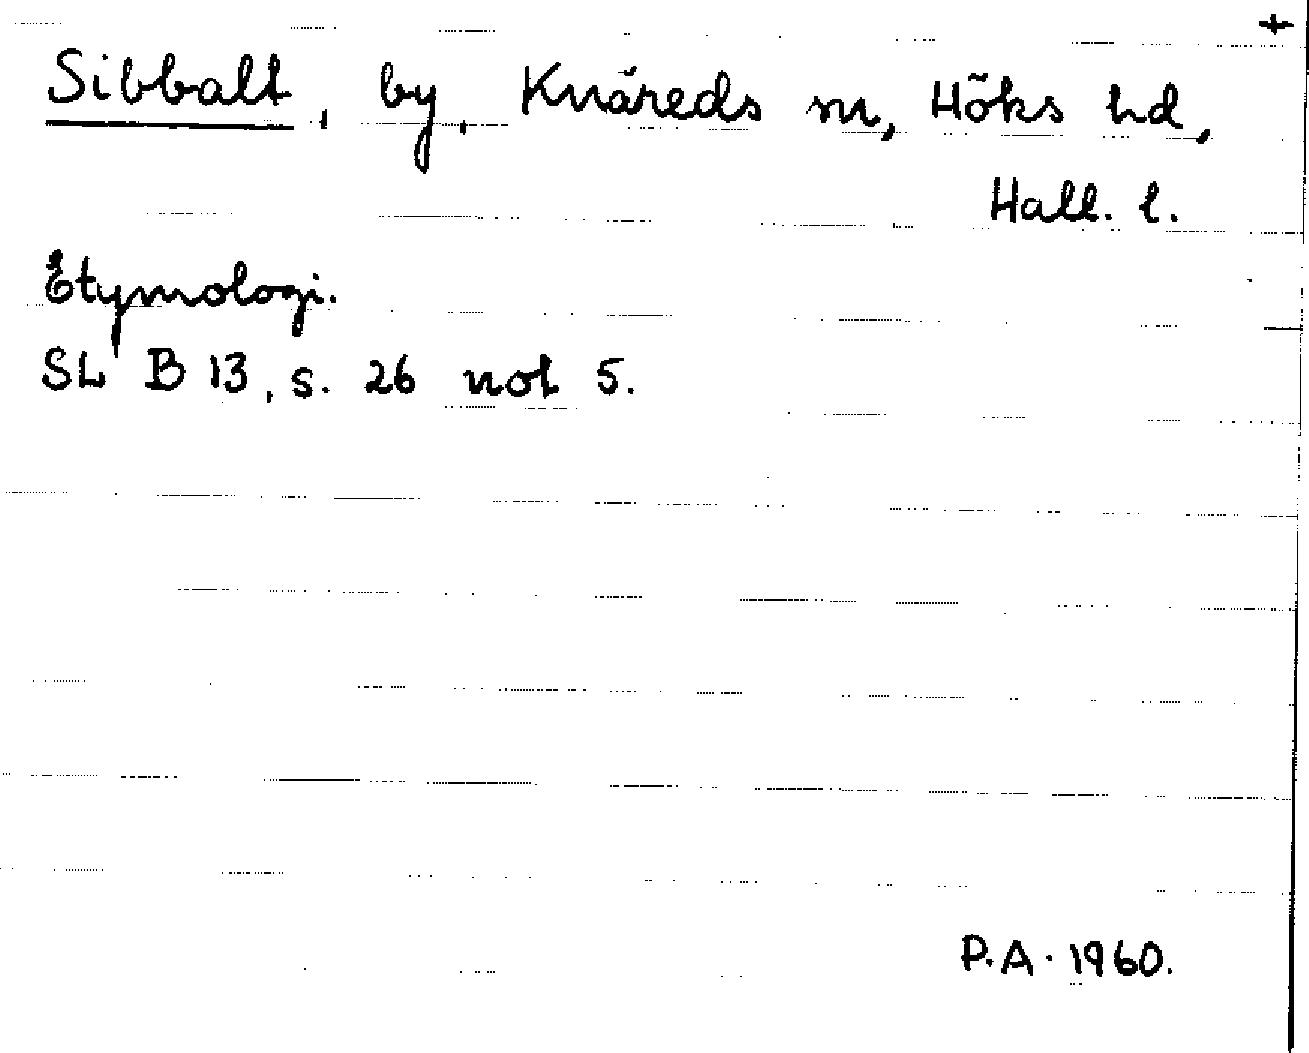 +
Sibbalt, by, Knäreds sn, Höks hd,
Hall. l.
Etymologi.
SL B 13, s. 26 not 5.
P.A. 1960.